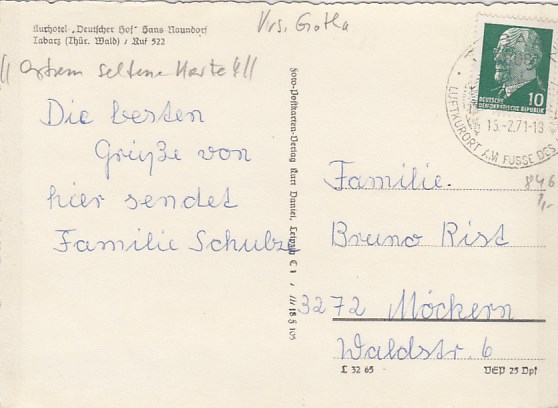 Kurhotel „Deutscher Hof" Hans Naundorf
Tabarz (Thür. Wald) / Ruf 522
Krs. Gotha
!! extrem seltene Karte !!
Die besten
Grüße von
hier sendet
Familie Schulze
Foto-Postkarten-Verlag Kurt Daniel, Leipzig C 1
III 18 5 105
10
DEUTSCHE
DEMOKRATISCHE REPUBLIK
13.-2.71-18
LUFTKURORT AM FUSSE DES
846
Familie
Bruno Rist
3272 Möckern
Waldstr. 6
L 32 65
VEP 25 Dpf